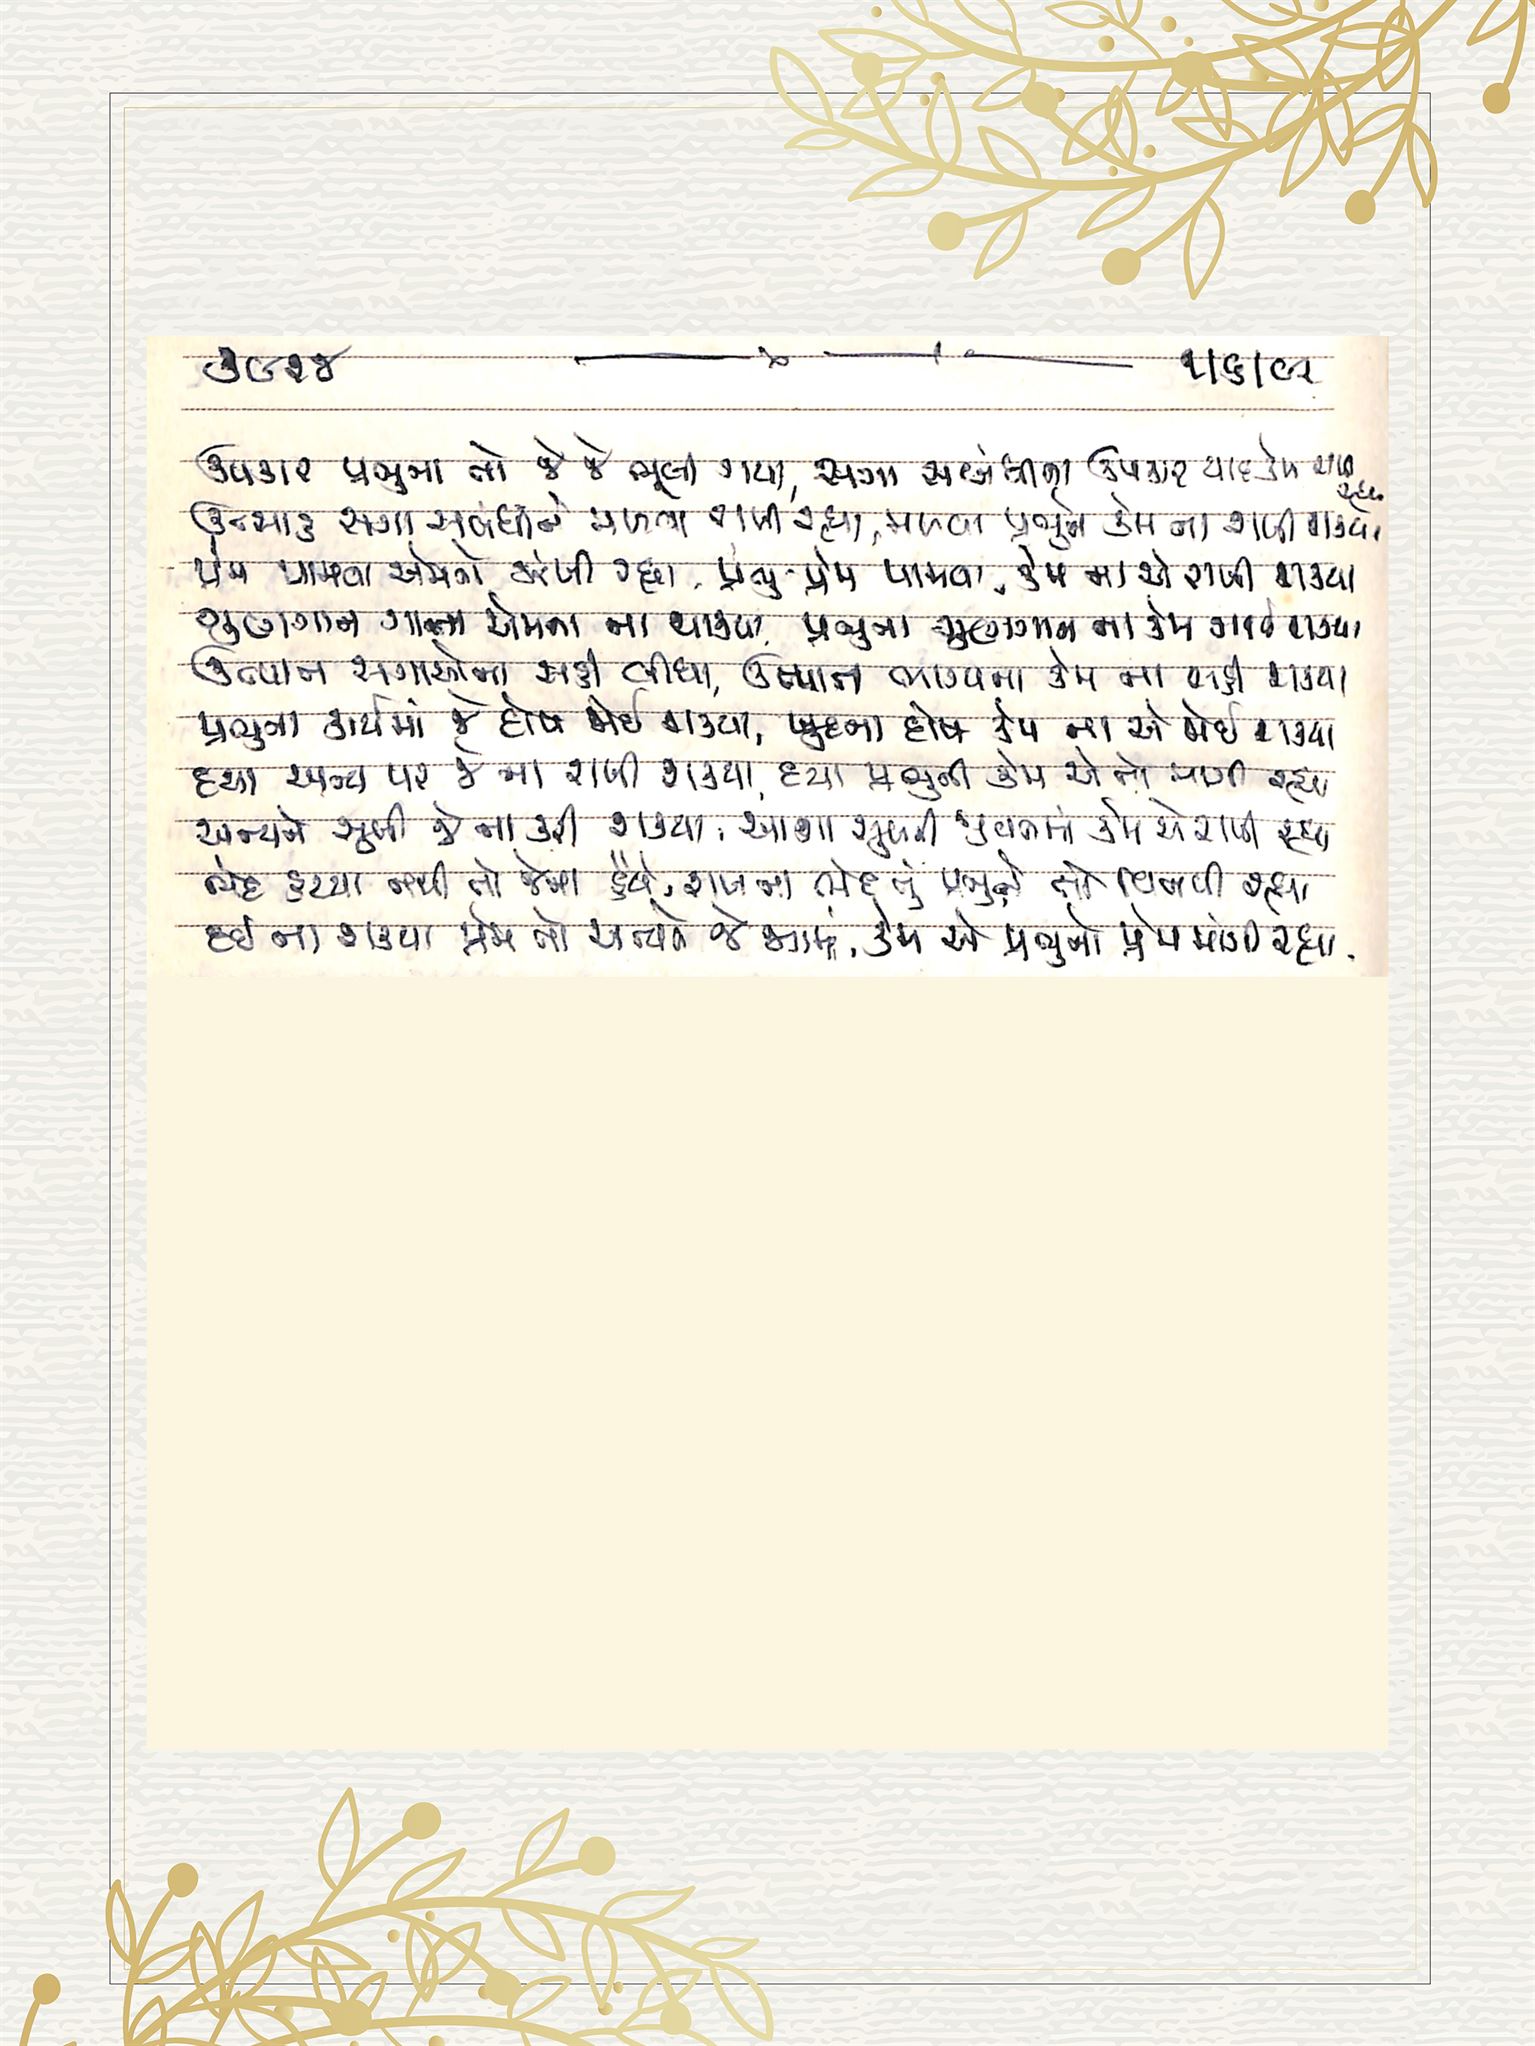 ૩૯૨૪ ૧/૬/૯૨
ઉપકાર પ્રભુના તો જે જે ભૂલી ગયા, સગા સબંધીના ઉપકાર યાદ કેમ રાખી રહ્યા
સગા સબંધીને મળતા રાખી રહ્યા, મળવા પ્રભુને કેમ ના રાખી શક્યા
પ્રેમ પામવા એમનો ઝંખી રહ્યા, પ્રભુ પ્રેમ પામવા, કેમ ના એ રાખી શક્યા
ગુણગાન ગાતા એમના ના થાક્યા, પ્રભુના ગુણગાન ના કેમ ગાઈ શક્યા
અપમાન સગાઓના સહી લીધા, અપમાન ભાગ્યના કેમ ના સહી શક્યા
પ્રભુના કાર્યમાં જે દોષ જોઈ શક્યા, ખુદના દોષ કેમ ના એ જોઈ શક્યા
દયા અન્ય પર જે ના રાખી શક્યા, દયા પ્રભુની કેમ એ તો માગી રહ્યા
અન્યને સુખી જે ના કરી શક્યા, આશા સુખની જીવનમાં કેમ એ રાખી રહ્યા
ભેદ હટયા નથી તો જેના હૈયે, રાખ ના ભેદ તું પ્રભુને તો વિનવી રહ્યા
દઈ ના શક્યા પ્રેમ તો અન્યને જે જગમાં, કેમ એ પ્રભુનો પ્રેમ માંગી રહ્યા.